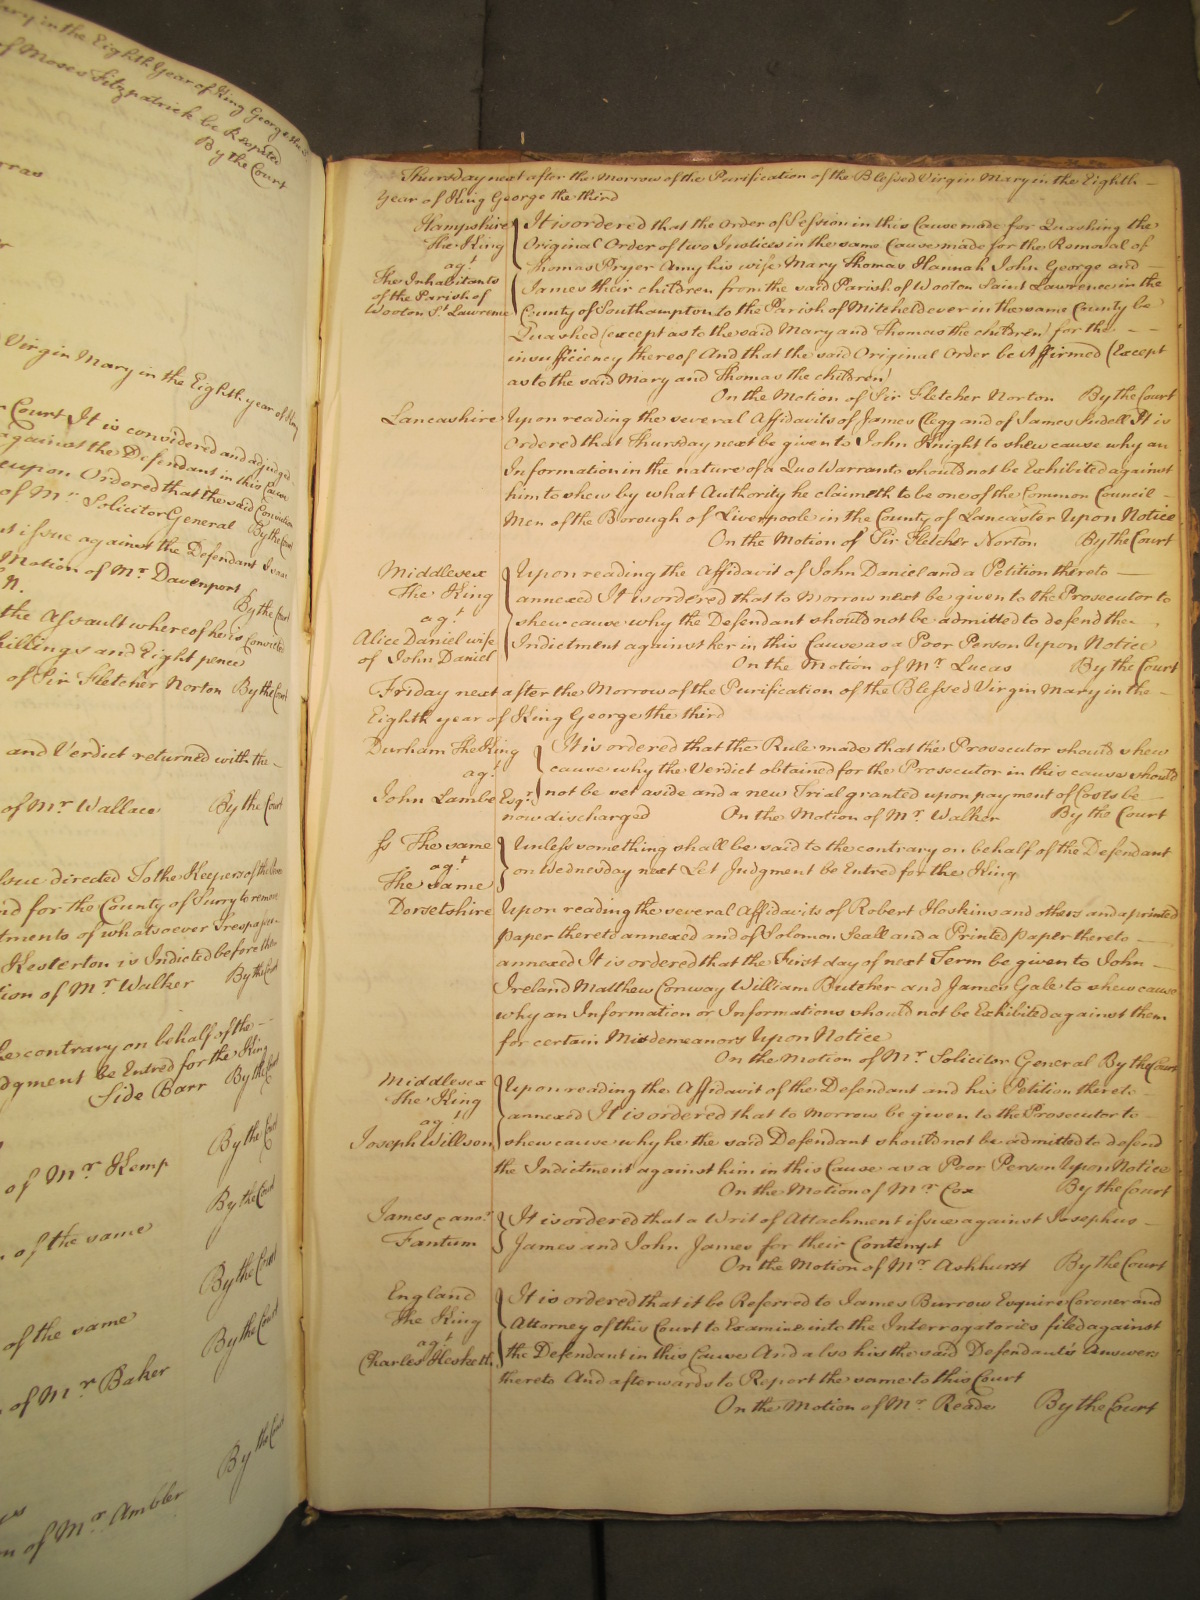 ary in the Eighth Year of King George the
of Moses Fitzpatrick be Respited
By the Court
Virgin Mary in the Eighth year of King
Court It is convidered and adjudged
against the Defendant in this Cause
eupon Ordered that the said Conviction
of Mr Solicitor General By the Court
t issue against the Defendant
Motion of Mr Davenport
By the Court
the Assault whereof he is Convicted
hillings and Eight pence
of Sir Fletcher Norton By the Court
and Verdict returned with the
of Mr Wallace By the Court
Issue directed To the Keepers of the
nd for the County of Surry to remove
tments of whatsoever Trespasses
Kesterton is Indicted before the
tion of Mr Walker By the Court
he contrary on behalf of the
dgment be Entred for the King
Side Barr By the Court
of Mr Kemp By the Court
of the same By the Court
of the same By the Court
of Mr Baker By the Court
on of Mr Ambler By the Court
Thursday next after the Morrow of the Purification of the Blessed Virgin Mary in the Eighth
Year of King George the third
Hampshire It is ordered that the Order of Session in this Cause made for Quashing the
The King Original Order of two Justices in the same Cause made for the Removal of
agt Thomas Pryer Amy his wife Mary Thomas Hannah John George and
The Inhabitants James their children from the said Parish of Wooton Saint Lawrence in the
of the Parish of County of Southampton to the Parish of Mitcheldever in the same County be
Wooton St Lawrence Quashed (except as to the said Mary and Thomas the children) for the
insufficiency thereof And that the said Original Order be Affirmed (Except
as to the said Mary and Thomas the children)
On the Motion of Sir Fletcher Norton By the Court
Lancashire Upon reading the several Affidavits of James Clegg and of James It is
Ordered that Thursday next be given to John Knight to shew cause why an
Information in the nature of a Quo Warranto should not be Exhibited against
him to shew by what Authority he claimeth to be one of the Common Council
Men of the Borough of Liverpoole in the County of Lancaster Upon Notice
On the Motion of Sir Fletcher Norton By the Court
Middlesex Upon reading the Affidavit of John Daniel and a Petition thereto
The King annexed It is ordered that to Morrow next be given to the Prosecutor to
agt shew cause why the Defendant should not be admitted to defend the
Alice Daniel wife Indictment against her in this Cause as a Poor Person Upon Notice
of John Daniel On the Motion of Mr Lucas By the Court
Friday next after the Morrow of the Purification of the Blessed Virgin Mary in the
Eighth year of King George the third
Durham The King It is ordered that the Rule made that the Prosecutor should shew
agt cause why the Verdict obtained for the Prosecutor in this cause should
John Lambe Esqr not be set aside and a new Trial granted upon payment of Costs be
now discharged On the Motion of Mr Walker By the Court
Ss The same Unless something shall be said to the contrary on behalf of the Defendant
agt on Wednesday next Let Judgment be Entred for the King
The same
Dorsetshire Upon reading the several Affidavits of Robert Hoskins and others and a printed
paper thereto annexed and of Solomon Seall and a Printed paper thereto
annexed It is ordered that the First day of next Term be given to John
Ireland Matthew Conway William Butcher and James Gale to shew cause
why an Information or Informations should not be Exhibited against them
for certain Misdemeanors Upon Notice
On the Motion of Mr Solicitor General By the Court
Middlesex Upon reading the Affidavit of the Defendant and his Petition thereto
The King annexed It is ordered that to Morrow be given to the Prosecutor to
agt shew cause why he the said Defendant should not be admitted to defend
Joseph Willson the Indictment against him in this Cause as a Poor Person Upon Notice
On the Motion of Mr Cox By the Court
James & anor It is ordered that a Writ of Attachment issue against Josephus
Fantum James and John James for their Contempt
On the Motion of Mr Ashhurst By the Court
England It is ordered that it be Referred to James Burrow Esquire Coroner and
The King Attorney of this Court to Examine into the Interrogatories filed against
agt the Defendant in this Cause And also his the said Defendant's Answers
Charles Hesketh thereto And afterwards to Report the same to this Court
On the Motion of Mr Reade By the Court